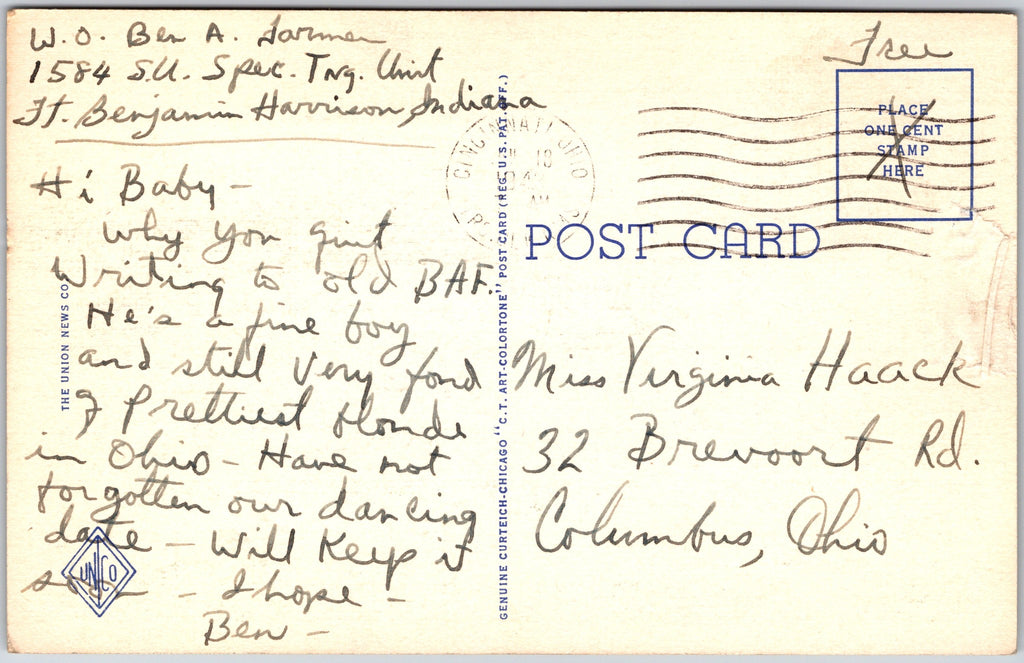 W.O. Ben A.
1584 S.U. Spec. Tng. Unit
Ft. Benjamin Harrison, Indiana
Hi Baby -
Why you quit
Writing to old BAF.
He's a fine boy
and still very fond
of Prettiest blonde
in Ohio - Have not
forgotten our dancing
date - Will Keep it
soon - I hope -
Ben -
THE UNION NEWS CO
UNCO
GENUINE CURTEICH-CHICAGO "C.T. ART-COLORTONE" POST CARD (REG. U.S. PAT. OFF.)
CINCINNATI OHIO
18
AM
Free
PLACE
ONE CENT
STAMP
HERE
POST CARD
Miss Virginia Haack
32 Brevoort Rd.
Columbus, Ohio